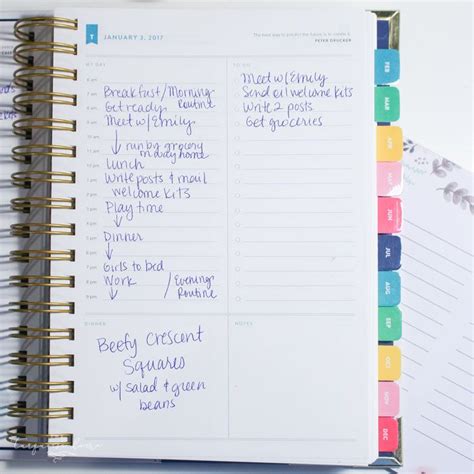 T
JANUARY 3, 2017
The best way to predict the future is to create it.
PETER DRUCKER
MY DAY
6 am
7 am Breakfast/Morning Routine
8 am Get ready
9 am Meet w/ Emily
10 am
11 am run by grocery on way home
12 pm Lunch
1 pm Write posts & mail
2 pm welcome kits
3 pm Play time
4 pm
5 pm Dinner
6 pm
7 pm Girls to bed
8 pm Work / Evening Routine
9 pm
TO DO
Meet w/ Emily
Send out welcome kits
Write 2 posts
Get groceries
DINNER
Beefy Crescent
Squares
w/ salad & green
beans
NOTES
FEB
MAR
APR
MAY
JUN
JUL
AUG
SEP
OCT
NOV
DEC